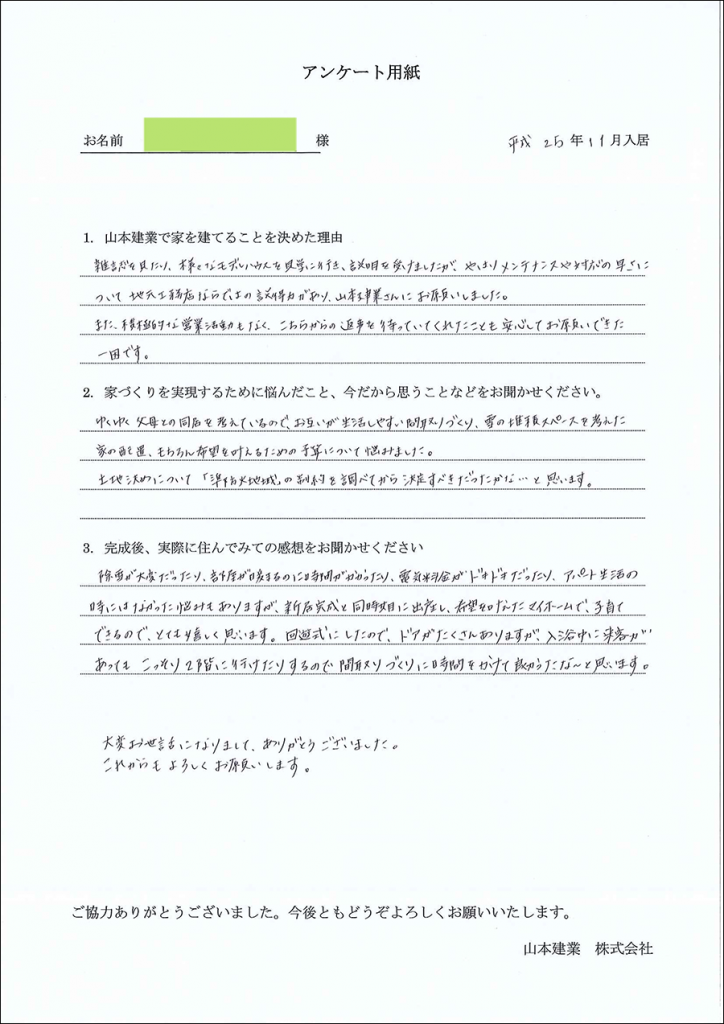 アンケート用紙
お名前 様 平成 25 年 11 月入居
1. 山本建業で家を建てることを決めた理由
雑誌を見たり、様々なモデルハウスを見学に行き、説明を受けましたが、やはりメンテナンスや対応の早さに
ついて地元工務店ならではの説得力があり、山本建業さんにお願いしました。
また、積極的な営業活動もなく、こちらからの返事を待っていてくれたことも安心してお願いできた
一因です。
2. 家づくりを実現するために悩んだこと、今だから思うことなどをお聞かせください。
ゆくゆく父母との同居を考えているので、お互いが生活しやすい間取りづくり、雪の堆積スペースを考えた
家の配置、もちろん希望を叶えるための予算について悩みました。
土地決めについて「準防火地域」の制約を調べてから決定すべきだったかな…と思います。
3. 完成後、実際に住んでみての感想をお聞かせください
除雪が大変だったり、部屋が暖まるのに時間がかかったり、電気料金がドキドキだったり、アパート生活の
時にはなかった悩みもありますが、新居完成と同時期に出産し、希望を叶えたマイホームで、子育て
できるので、とても嬉しく思います。回遊式にしたので、ドアがたくさんありますが、入浴中に来客が
あってもこっそり2階に行けたりするので間取りづくりに時間をかけて良かったな～と思います。
大変お世話になりまして、ありがとうございました。
これからもよろしくお願いします。
ご協力ありがとうございました。今後ともどうぞよろしくお願いいたします。
山本建業 株式会社